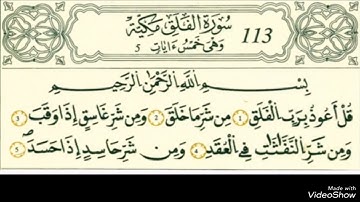 سُورَةُ الفَلَقِ مَكِّيَّة 113
وَهِيَ خَمْسُ ءَايَاتٍ 5
بِسْمِ اللَّهِ الرَّحْمَٰنِ الرَّحِيمِ
قُلْ أَعُوذُ بِرَبِّ الْفَلَقِ 1 مِن شَرِّ مَا خَلَقَ 2 وَمِن شَرِّ غَاسِقٍ إِذَا وَقَبَ 3
وَمِن شَرِّ النَّفَّاثَاتِ فِي الْعُقَدِ 4 وَمِن شَرِّ حَاسِدٍ إِذَا حَسَدَ 5
Made with
VideoShow